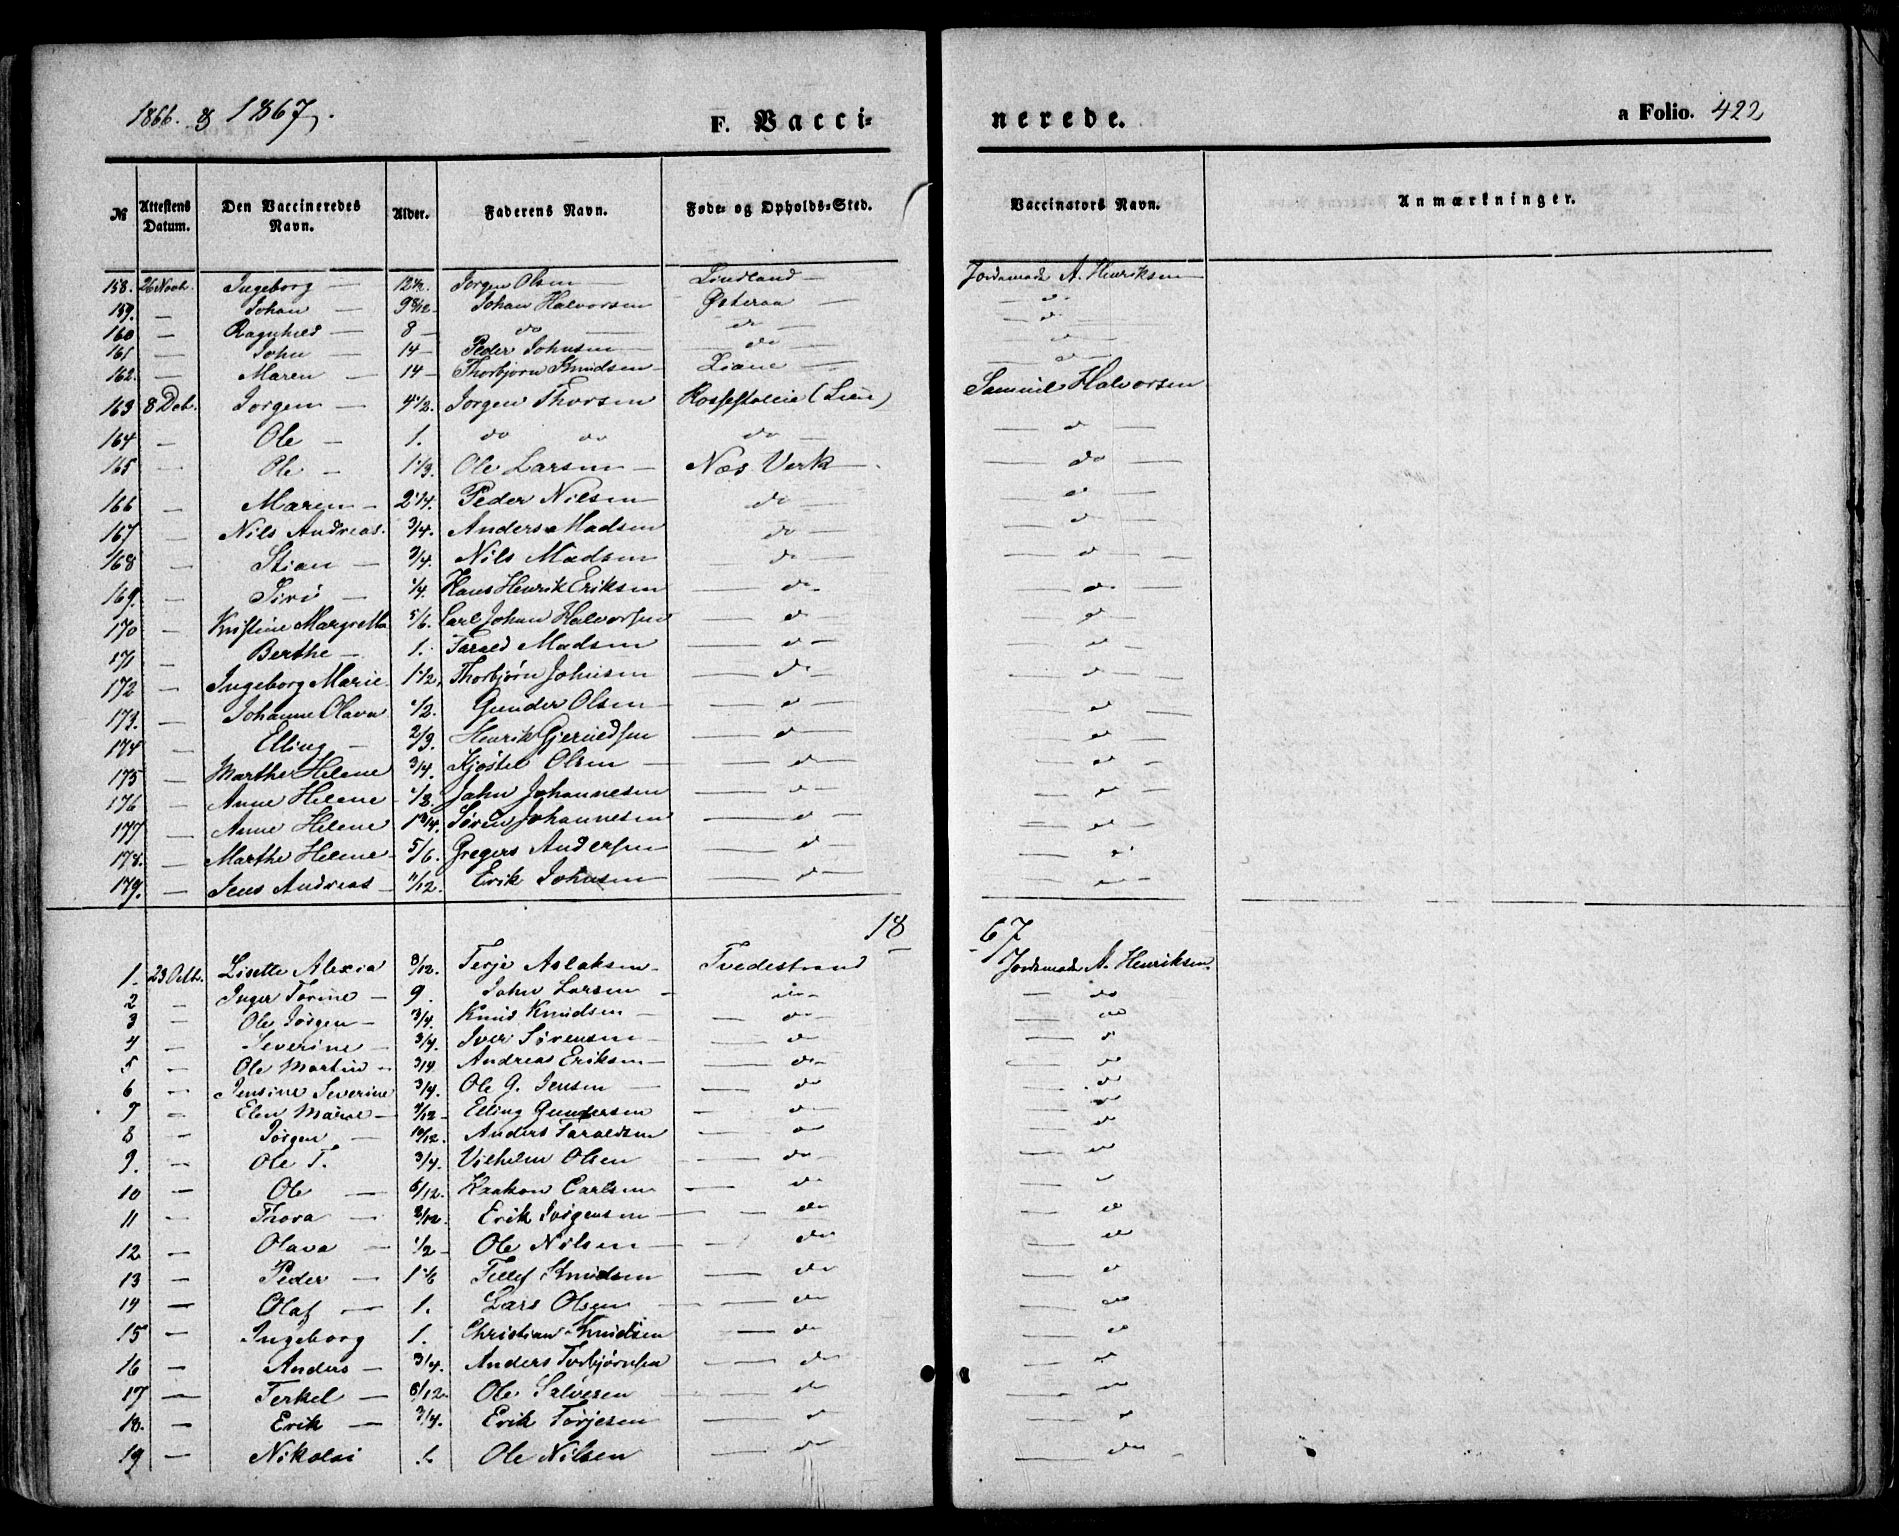 1866. & 1867.
F. Vacci-
nerede.
a Folio. 422
№ Attestens Datum. Den Vaccineredes Navn. Alder. Faderens Navn. Føde- og Opholds-Sted. Vaccinators Navn. Anmærkninger.
158. 26 Novb. Ingeborg — 12 1/2 Jorgen Olsen — Lindland — Jordemode A. Henriksen
159. — Johan — 9 8/12 Johan Halvorsen Østeraa — do
160 — Ragnhild — 8 — do — do — do
161 — John — 14 — Peder Johnsen — do — do
162. — Maren — 14 — Thorbjørn Knudsen — Liane — do
163 8 Deb. Jorgen — 4 1/2. Jorgen Thorsen (Liene) Samuel Halvorsen
164 — Ole — 1. do do do — do
165 — Ole — 1 1/3. Ole Larsen — Næs Verk — do
166 — Maren — 2 1/4. Peder Nilsen — do — do
167 — Nils Andreas. 3/4. Anders Madsen do — do
168 — Stian — 3/4. Nils Madsen do — do
169. — Siri — 1/4. Hans Henrik Eriksen — do — do
170 — Kristine Margretha 5/6. Carl Johan Halvorsen — do — do
171 — Berthe — 1. Tarald Madsen — do — do
172 — Ingeborg Marie 1 1/2. Thorbjørn Johnsen — do — do
173. — Johanne Olava 1/2. Gunder Olsen — do — do
174 — Elling — 2/3. Henrik Gjeruldsen — do — do
175 — Marthe Helene 3/4. Kjøstel Olsen — do — do
176 — Anne Helene — 1/3. John Johannesen — do — do
177 — Anne Helene 1 3/4. Søren Johannesen — do — do
178. — Marthe Helene — 5/6. Gregers Andersen — do — do
179. — Jens Andreas — 11/12. Erik Johnsen — do — do
18 67
1. 23 Octb. Lisette Alexia 3/12. Terje Aslaksen — Tvedestrand Jordemode A. Henriksen
2 — Inger Torine — 9. John Larsen — do — do
3 — Ole Jørgen — 3/4. Knud Knudsen — do — do
4 — Severine — 3/4. Iver Sørensen — do — do
5 — Ole Martin — 3/4 Andreas Eriksen — do — do
6 — Jensine Severine 3/4. Ole G. Jensen — do — do
7 — Elen Marie — 9/12 — Elling Gundersen — do — do
8 — Jørgen — 10/12. Anders Taraldsen — do — do
9. — Ole T. 3/4. Vilhelm Olsen — do — do
10 — Ole — 5/12. Haakon Carlsen — do — do
11 — Thora — 8/12. Erik Jørgensen — do — do
12 — Olava — 1/2 — Ole Nilsen — do — do
13 — Peder — 1 1/6 Tellef Knudsen — do — do
14 — Olaf — 1. Lars Olsen — do — do
15 — Ingeborg 1. Christian Knudsen — do — do
16 — Anders — 3/4. Anders Torbjørnsen — do — do
17 — Terkel — 8/12. Ole Salvesen — do — do
18. — Erik — 3/4. Erik Torjesen — do — do
19 — Nikolai 1. Ole Nilsen — do — do